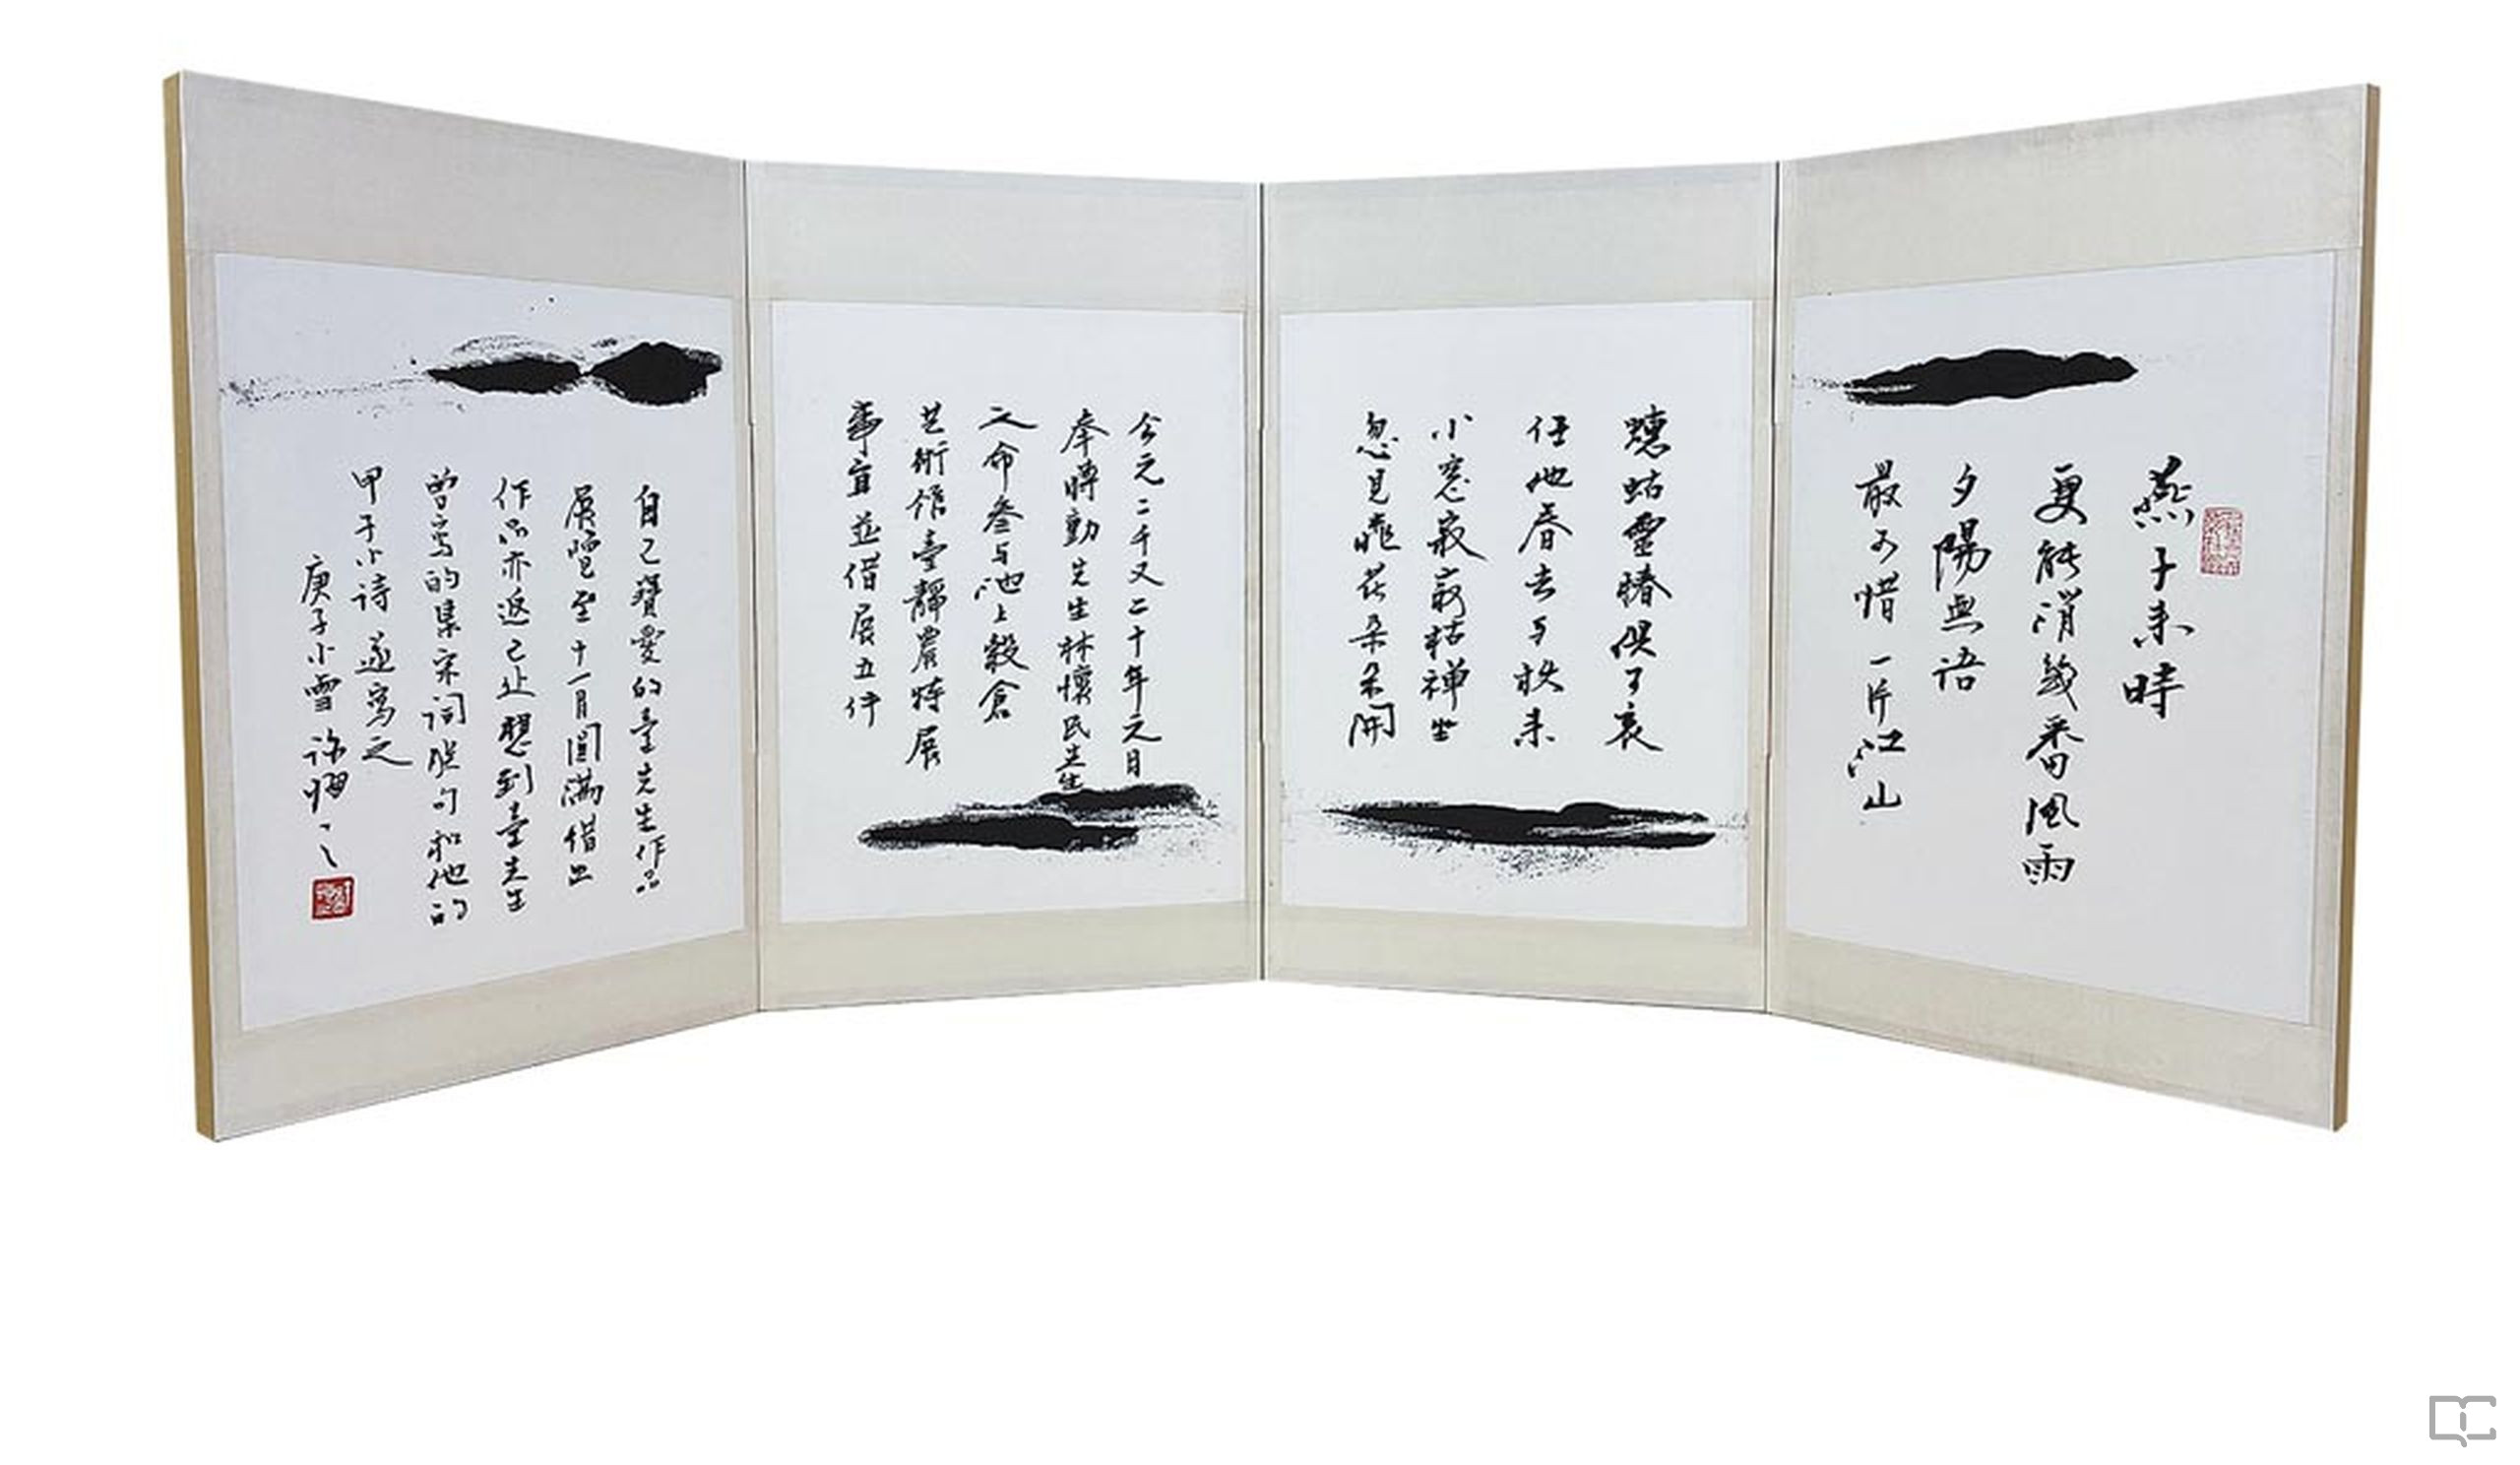 燕子来時
更能消幾番風雨
夕陽無語
最可惜一片江山
蟪蛄靈椿俱可哀
任他春去与秋来
小窓寂寂枯禅坐
忽見瓶花朵朵開
公元二千又二十年元月
奉蔣勳先生林懷民先生
之命叄与池上穀倉
芸術館臺靜農特展
事宜並借展五件
自己寶愛的臺先生作品
展覽至十一月圓滿借出
作品亦返己止想到臺先生
曾寫的集宋詞聯句和他的
甲子小詩遂寫之
庚子小雪許悔之